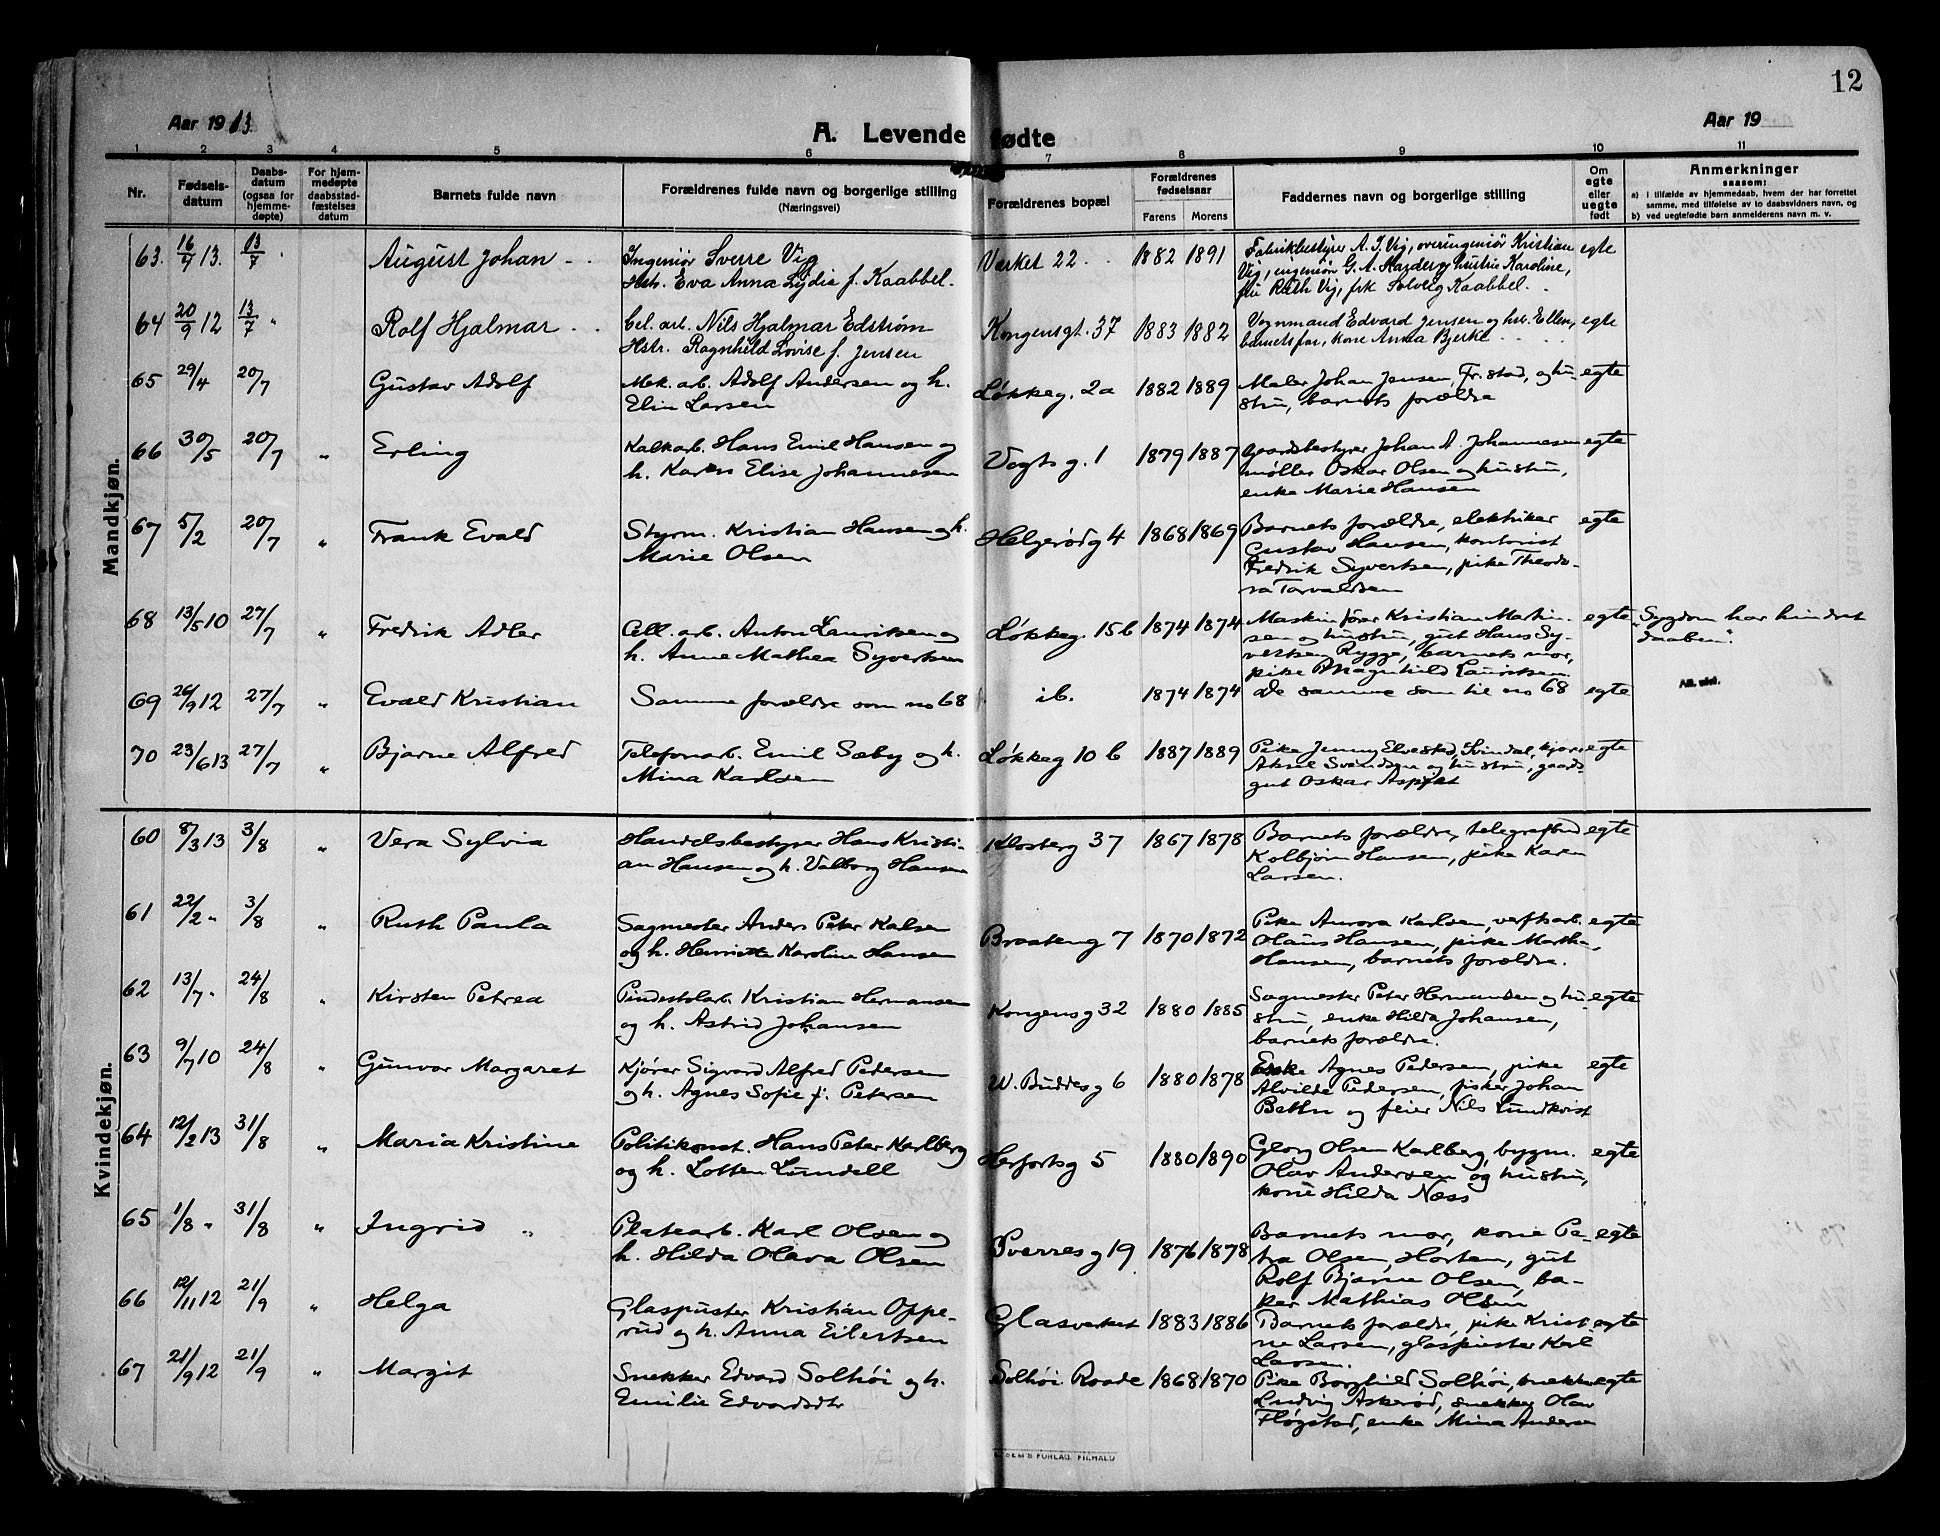 12
Aar 1913.
A. Levende fødte
Aar 19
1 2 3 4 5 6 7 8 9 10 11
Nr.
Fødsels-
datum
Daabs-
datum
(ogsaa for
hjemme-
døpte)
For hjem-
medøpte
daabsstad-
fæstelses
datum
Barnets fulde navn
Forældrenes fulde navn og borgerlige stilling
(Næringsvei)
Forældrenes bopæl
Forældrenes
fødselsaar
Farens Morens
Faddernes navn og borgerlige stilling
Om
egte
eller
uegte
født
Anmerkninger
saasom:
a) i tilfælde av hjemmedaab, hvem der har forrettet
samme, med tilføielse av to daabsvidners navn, og
b) ved uegtefødte barn anmelderens navn m. v.
Mandkjøn.
63. 16/7 13. 13/7 August Johan Ingeniør Sverre Vig Værket 22 1882 1891 Fabrikbestyrer A. J. Vig, overingeniør Kristian egte
Hstr. Eva Anna Lydie f. Kaabbel. Vig, ingeniør G. A. Harder og hustru Karoline,
Ruth Vig, frk Solveig Kaabbel.
64 20/9 12 13/7 " Rolf Hjalmar Cel. arb. Nils Hjalmar Edstrøm Kongensgt. 37 1883 1882 Vognmand Edvard Jensen og hst. Ellen, egte
Hstr. Ragnhild Lovise f. Jensen barnets far, kone Anna Bjerke
65 29/4 20/7 Gustav Adolf Mek. arb. Adolf Andersen og h. Løkkeg. 2a 1882 1889 Maler Johan Jensen, Fr.stad, og hu- egte
Elin Larsen stru, barnets forældre
66 30/5 20/7 " Erling Kalkarb. Hans Emil Hansen og Vogts g. 1 1879 1887 Gaardsbestyrer Johan A. Johannesen egte
h. Karen Elise Johannesen møller Oskar Olsen og hustru,
enke Marie Hansen
67 5/2 20/7 " Frank Evald Styrm. Kristian Hansen og h. Helgerødg 4 1868 1869 Barnets forældre, elektriker egte
Marie Olsen Gustav Hansen, kontorist
Fredrik Syvertsen, pike Theodo-
ra Torvaldsen
68 13/5 10 27/7 " Fredrik Adler Cell. arb. Anton Lauritsen og Løkkeg. 15b 1874 1874 Maskinfører Kristian Martin- egte "Sygdom har hindret
h. Anne Mathea Syvertsen sen og hustru, gut Hans Sy- daaben".
vertsen Rygge, barnets mor,
pike Magnhild Lauritsen.
69 26/9 12 27/7 " Evald Kristian Samme forældre som no 68 ib. 1874 1874 de samme som til no 68 egte
70 23/6 13 27/7 " Bjarne Alfred Telefonarb. Emil Sæby og h. Løkkeg 10 b 1887 1889 Pike Jenny Elvestad, Svindal, kjører egte
Mina Karlsen Aksel Svendsen og hustru, gaards-
gut Oskar
Kvindekjøn.
60 8/3 13 3/8 " Vera Sylvia Handelsbestyrer Hans Kristi- Klosterg 37 1867 1878 Barnets forældre, telegrafbud egte
an Hansen og h. Valborg Hansen Kolbjørn Hansen, pike Karen
Larsen.
61 22/2 " 3/8 " Ruth Paula Sagmester Anders Peter Kalsen Braateng 7 1870 1872 Pike Aurora Karlsen, verftsarb. egte
og h. Henriette Karoline Hansen Olaus Hansen, pike Martha
Hansen, barnets forældre.
62 13/7 " 24/8 " Kirsten Petrea Pindestolarb. Kristian Hermansen Kongens g 32 1880 1885 Sagmester Peter Hermansen og hu- egte
og h. Astrid Johansen stru, enke Hilda Johansen,
barnets forældre.
63 9/7 10 24/8 Gunvor Margaret Kjører Sigvard Alfred Pedersen W. Buddes g 6 1880 1878 Enke Agnes Pedersen, pike egte
og h. Agnes Sofie f. Petersen Alvilde Pedersen, fisker Johan
og feier Nils Lundkvist
64 12/2 13 31/8 " Maria Kristine Politikonst. Hans Peter Karlberg Herforts g 5 1880 1890 Georg Olsen Karlberg, bygm. egte
og h. Lotten Lundell Olav Andersen og hustru,
kone Hilda Næss
65 1/8 " 31/8 " Ingrid " Platearb. Karl Olsen og Sverres g 19 1876 1878 Barnets mor, kone Pe- egte
h. Hilda Olava Olsen tra Olsen, Horten, gut
Rolf Bjarne Olsen, ba-
ker Mathias Olsen
66 12/11 12 21/9 " Helga Glaspuster Kristian Oppe- Glasverket 1883 1886 Barnets forældre, pike Kristi- egte
rud og h. Anna Eilertsen ne Larsen, glaspuster Karl
Larsen.
67 21/9 12 21/9 " Margit Snekker Edvard Solhøi og h. Solhøi Raade 1868 1870 Pike Borghild Solhøi, snekker egte
Emilie Edvardsdtr Ludvig Askerød, snekker Olav
Fløgstad, enke Mina Andersen
FORLAG,